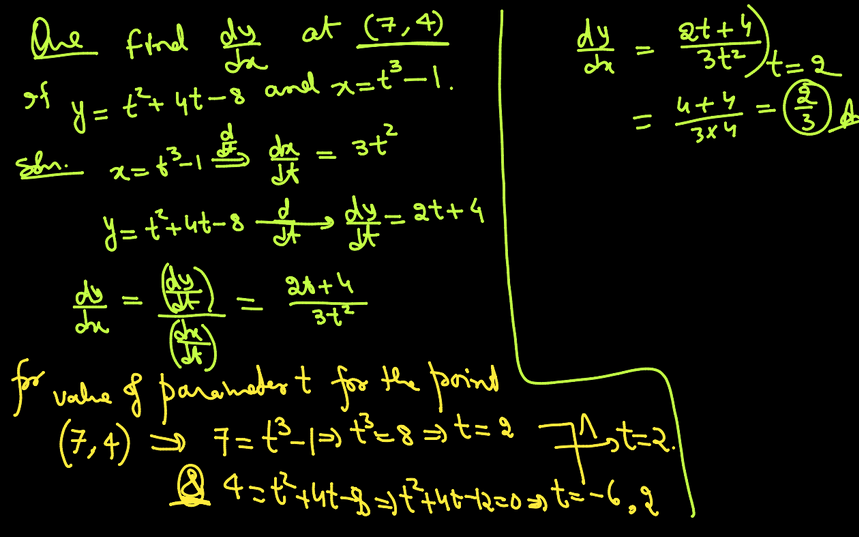 Que find dy/dx at (7,4)
if y = t² + 4t - 8 and x = t³ - 1.
Soln. x = t³ - 1 d/dt ⟹ dx/dt = 3t²
y = t² + 4t - 8 d/dt → dy/dt = 2t + 4
dy/dx = (dy/dt)/(dx/dt) = (2t + 4)/(3t²)
for value of parameter t for the point
(7,4) ⇒ 7 = t³ - 1 ⇒ t³ = 8 ⇒ t = 2
→ t = 2.
& 4 = t² + 4t - 8 ⇒ t² + 4t - 12 = 0 ⇒ t = -6, 2
dy/dx = (2t + 4)/(3t²)) t = 2
= (4 + 4)/(3 × 4) = 2/3